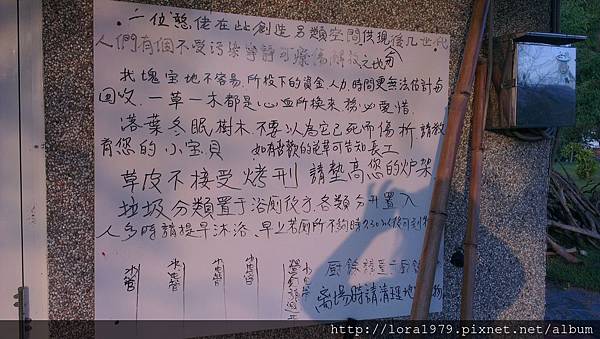 一位憨佬在此創造另類空間供現後几世代
人們有個不受污染寧靜可療傷解放之地
找塊宝地不容易.所投下的資金人力.時間更無法估計与
回收.一草一木都是心血所換來務必愛惜.
落葉冬眠樹木.不要以為它已死而傷折.請教
育您的小宝贝 如有喜歡的花草可告知長工
草皮不接受烤刑 請墊高您的炉架
垃圾分類置于浴廁後方各類分開置入
人多時請提早沐浴.早上若廁所不夠時
水管 水管 水管 水管
廚餘請置于廚
离場時請清理地 物
http://lora1979.pixnet.net/album